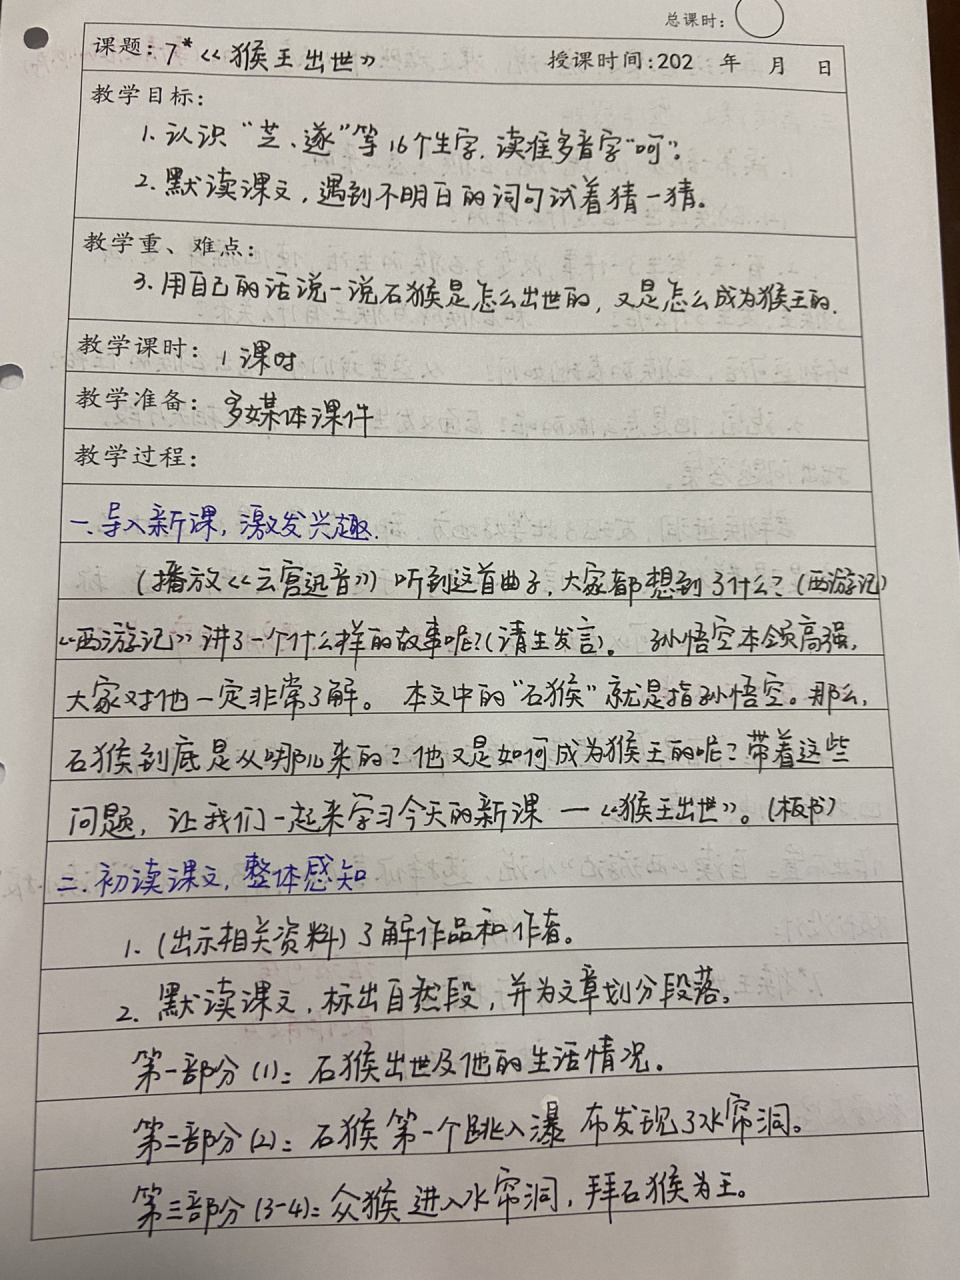 总课时:
课题: 7* 《猴王出世》 授课时间:202 年 月 日
教学目标:
1. 认识“芝、遂”等16个生字. 读准多音字“呵”。
2. 默读课文,遇到不明白的词句试着猜一猜。
教学重、难点:
3. 用自己的话说一说石猴是怎么出世的, 又是怎么成为猴王的.
教学课时: 1 课时
教学准备: 多媒体课件
教学过程:
一. 导入新课, 激发兴趣.
(播放《云宫迅音》) 听到这首曲子, 大家都想到了什么? (西游记)
《西游记》讲了一个什么样的故事呢?(请生发言)。 孙悟空本领高强,
大家对他一定非常了解。 本文中的“石猴”就是指孙悟空。那么,
石猴到底是从哪儿来的? 他又是如何成为猴王的呢? 带着这些
问题, 让我们一起来学习今天的新课 — 《猴王出世》。(板书)
二. 初读课文, 整体感知
1. (出示相关资料) 了解作品和作者。
2. 默读课文, 标出自然段, 并为文章划分段落。
第一部分 (1): 石猴出世及他的生活情况。
第二部分 (2): 石猴第一个跳入瀑布发现了水帘洞。
第三部分 (3-4): 众猴进入水帘洞, 拜石猴为王。